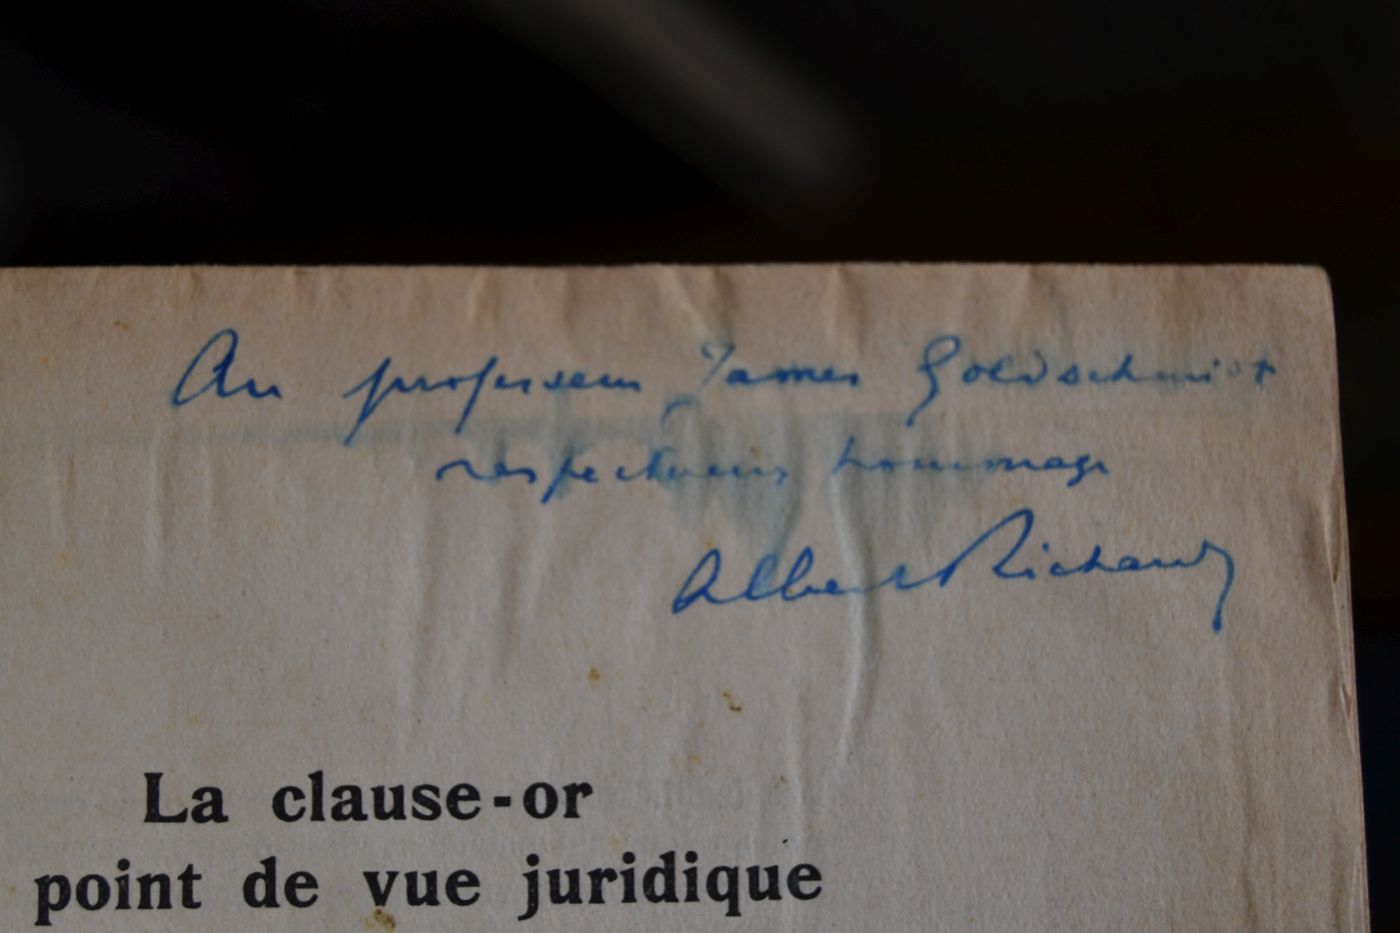 Au professeur James Goldschmidt
respectueux hommage
Albert Richard
La clause-or
point de vue juridique